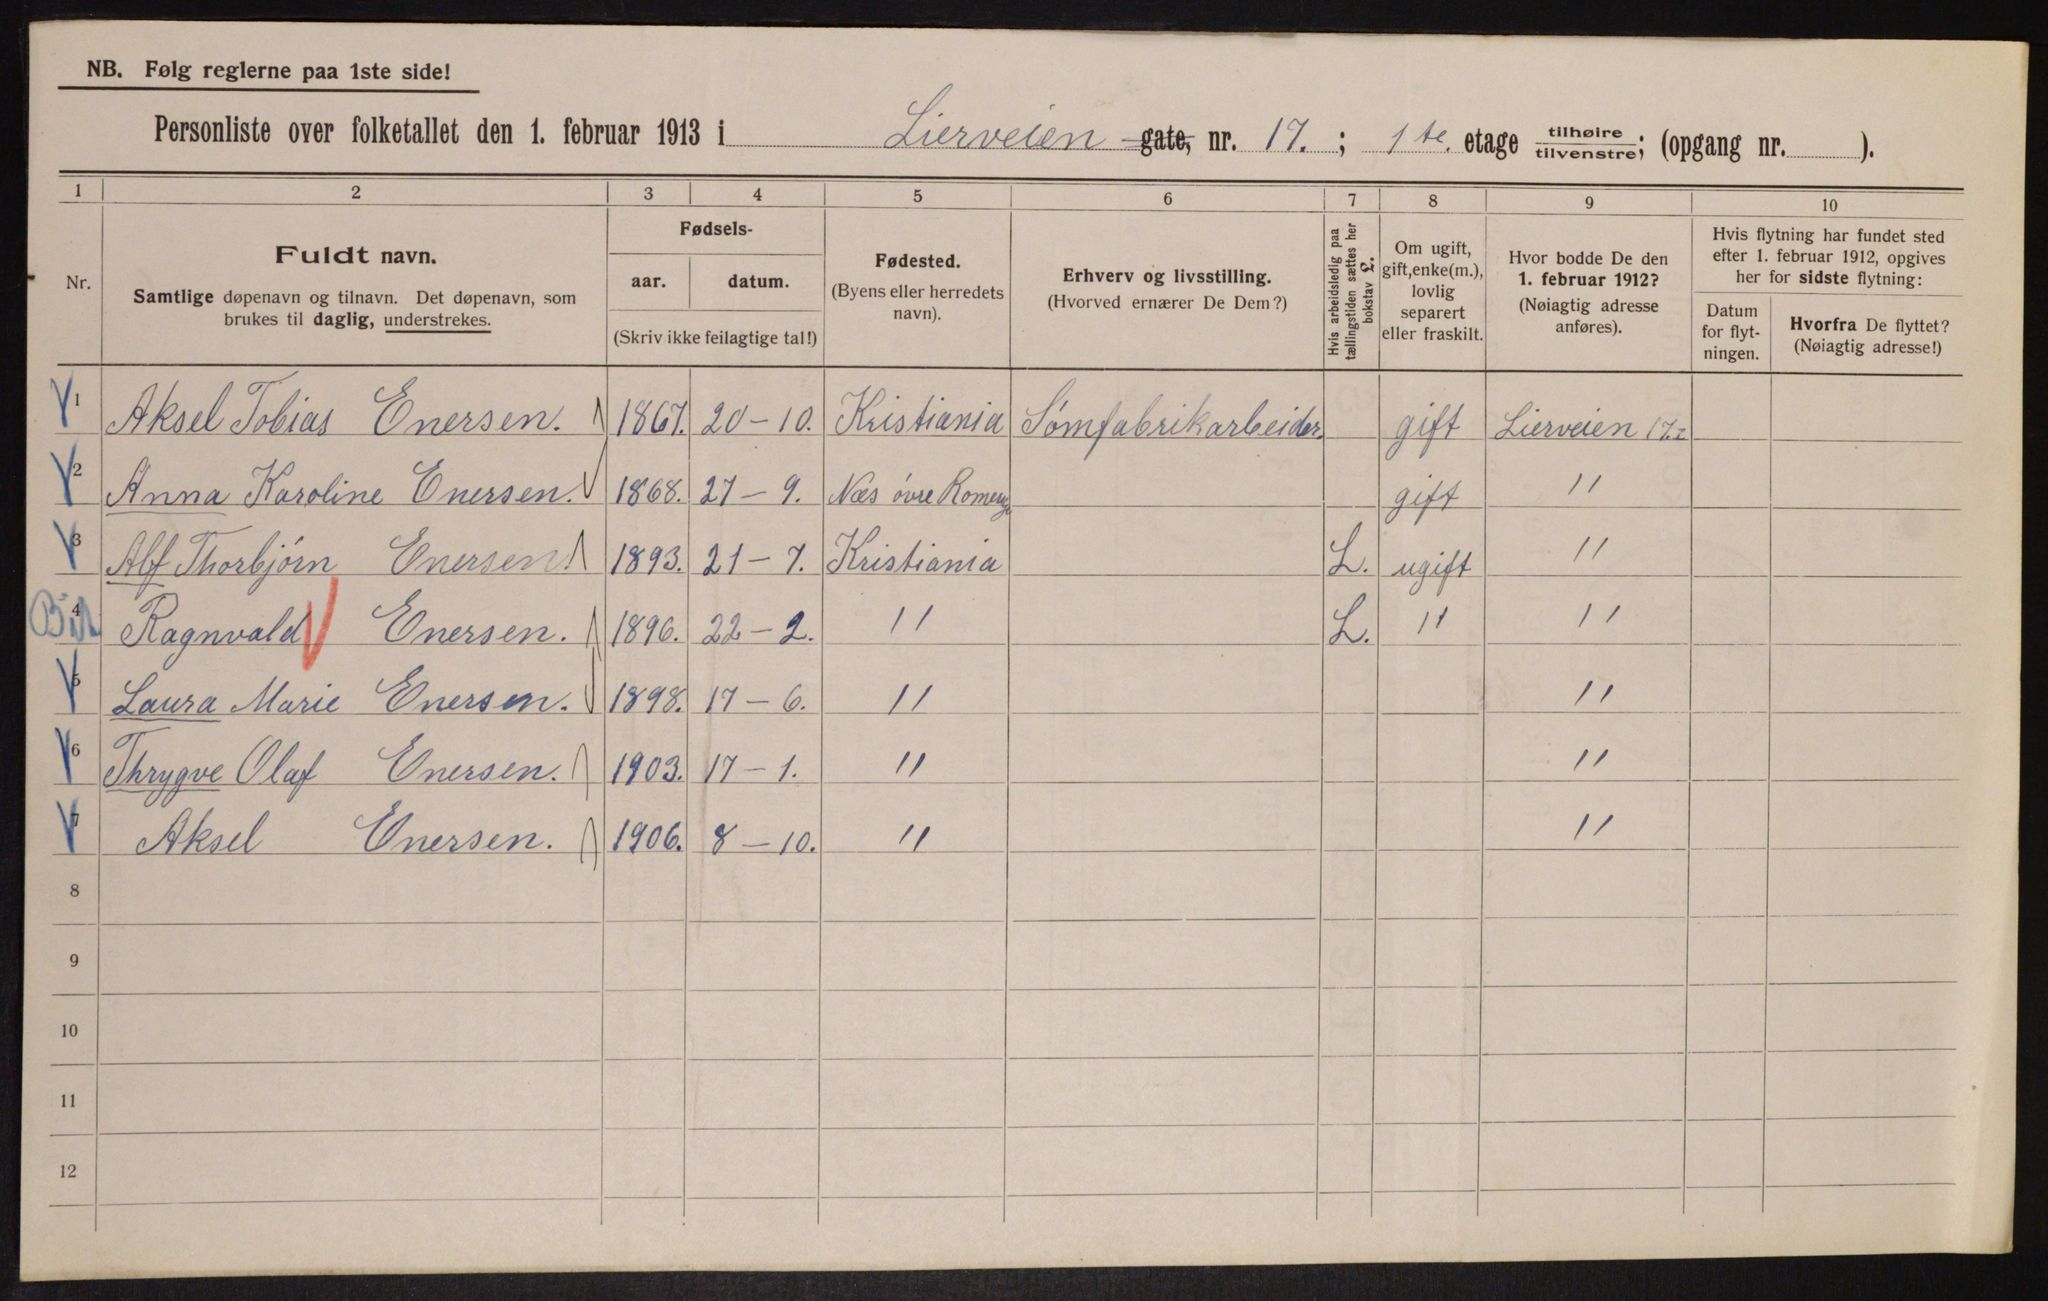 NB. Følg reglerne paa 1ste side!
Personliste over folketallet den 1. februar 1913 i Lierveien gate, nr. 17. ; 1 te. etage tilhøire/tilvenstre; (opgang nr. ).
1 2 3 4 5 6 7 8 9 10
Nr.
Fuldt navn.
Samtlige døpenavn og tilnavn. Det døpenavn, som
brukes til daglig, understrekes.
Fødsels-
aar. datum.
(Skriv ikke feilagtige tal!)
Fødested.
(Byens eller herredets
navn).
Erhverv og livsstilling.
(Hvorved ernærer De Dem?)
Hvis arbeidsledig paa
tællingstiden sættes her
bokstav £.
Om ugift,
gift, enke(m.),
lovlig
separert
eller fraskilt.
Hvor bodde De den
1. februar 1912?
(Nøiagtig adresse
anføres).
Hvis flytning har fundet sted
efter 1. februar 1912, opgives
her for sidste flytning:
Datum
for flyt-
ningen.
Hvorfra De flyttet?
(Nøiagtig adresse!)
1 Aksel Tobias Enersen. 1867. 20-10. Kristiania Sømfabrikarbeider. gift Lierveien 17.I
2 Anna Karoline Enersen. 1868. 27-9. Næs øvre Romerige gift "
3 Alf Thorbjørn Enersen. 1893. 21-7. Kristiania L. ugift "
4 Ragnvald Enersen. 1896. 22-2. " L. " "
5 Laura Marie Enersen. 1898. 17-6. " "
6 Thrygve Olaf Enersen. 1903. 17-1. " "
7 Aksel Enersen. 1906. 8-10. " "
8
9
10
11
12